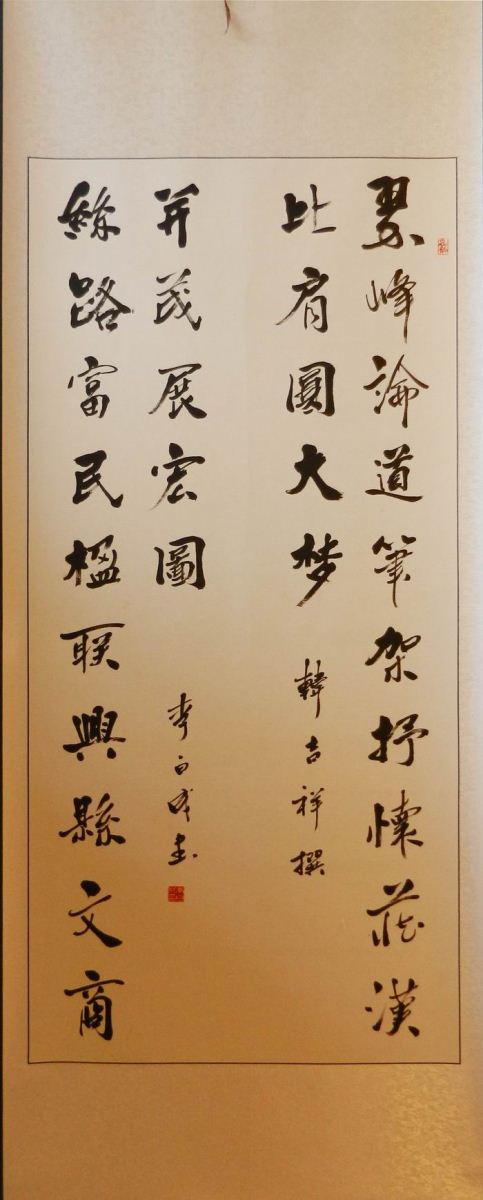 翠峰論道筆架抒懷莊漢
比肩圓大梦
韓吉祥撰
絲路富民楹联興縣文商
并茂展宏圖
李白成書